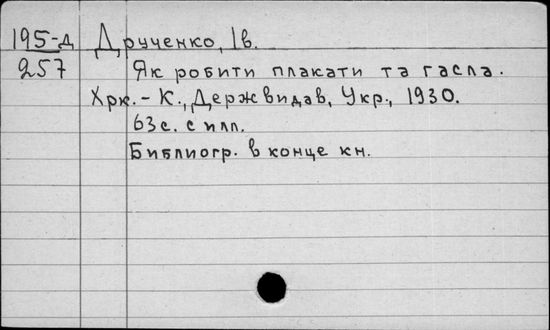 195-д Друченко, Ів.
257 Як робити плакати та гасла.
Хрк.-К., Держвидав, Укр., 1930.
63с. с илл.
Библиогр. в конце кн.